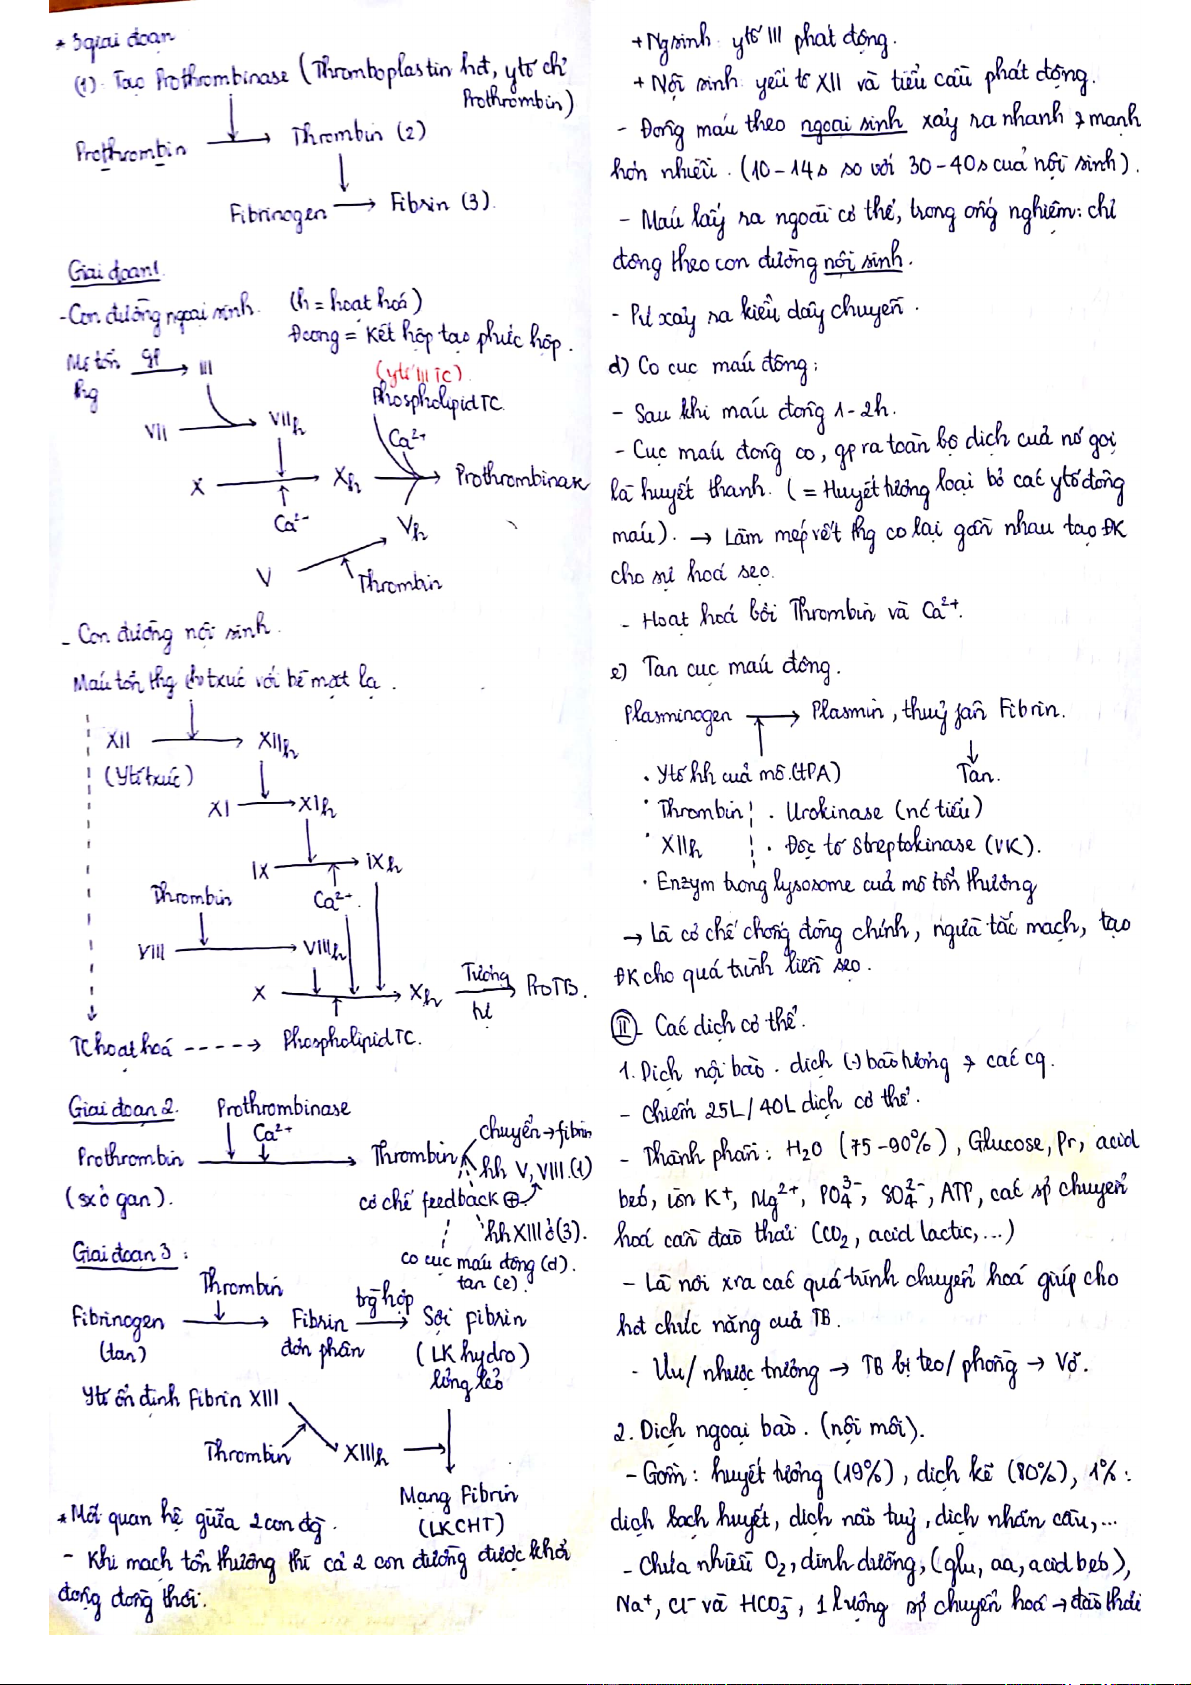 * 3 giai đoạn
(1). Tạo Prothrombinase (Thromboplastin hđ, ytố chỉ
Prothrombin)
Prothrombin → Thrombin (2)
Fibrinogen → Fibrin (3).
Giai đoạn 1
- Con đường ngoại sinh. (h = hoạt hoá)
Đcong = Kết hợp tạo phức hợp.
Mô tổn gp → III (ytố III TC)
thg Phospholipid TC.
VII → VIIh Ca²⁺
X → Xh → Prothrombinase
Ca²⁺ Vh
V Thrombin
- Con đường nội sinh.
Máu tổn thg or txúc với bề mặt lạ.
XII → XIIh
(Ytố txúc)
XI → XIh
IX → IXh
Thrombin Ca²⁺
VIII → VIIIh
X → Xh Tương tự → ProTB.
TC hoạt hoá ----> Phospholipid TC.
Giai đoạn 2. Prothrombinase
Ca²⁺ chuyển → fibrin
Prothrombin → Thrombin hh V, VIII (1)
(sx ở gan). cơ chế feedback ⊕
hh XIII ở (3).
Giai đoạn 3 : co cục máu đông (d).
tan (e).
Thrombin trg hợp
Fibrinogen → Fibrin → Sợi fibrin
(tan) đơn phân (LK hydro)
lỏng lẻo
Ytố ổn định Fibrin XIII
Thrombin XIIIh →
Mạng Fibrin
(LKCHT)
* Mối quan hệ giữa 2 con đg.
- Khi mạch tổn thương thì cả 2 con đường được khởi
động đồng thời.
+ Ng sinh ytố III phát động.
+ Nội sinh yếu tố XII và tiểu cầu phát động.
- Đông máu theo ngoại sinh xảy ra nhanh & mạnh
hơn nhiều. (10-14s so với 30-40s của nội sinh).
- Máu lấy ra ngoài cơ thể, trong ống nghiệm: chỉ
đông theo con đường nội sinh.
- PƯ xảy ra kiểu dây chuyền.
d) Co cục máu đông:
- Sau khi máu đông 1-2h.
- Cục máu đông co, gp ra toàn bộ dịch của nó gọi
là huyết thanh. (= Huyết tương loại bỏ các ytố đông
máu). → Làm mép vết thg co lại gần nhau tạo ĐK
cho sự hoá sẹo.
- Hoạt hoá bởi Thrombin và Ca²⁺.
e) Tan cục máu đông.
Plasminogen → Plasmin, thuỷ fân Fibrin.
. Ytố hh của mô. (tPA) Tan.
. Thrombin . Urokinase (nc tiểu)
. XIIh . Độc tố Streptokinase (VK).
. Enzym trong lysosome của mô tổn thương
→ Là cơ chế chống đông chính, ngừa tắc mạch, tạo
ĐK cho quá trình liền sẹo.
II - Các dịch cơ thể.
1. Dịch nội bào. dịch (-) bào tương & các cq.
- Chiếm 25L/40L dịch cơ thể.
- Thành phần: H₂O (75-90%), Glucose, Pr, acid
béo, ion K⁺, Mg²⁺, PO₄³⁻, SO₄²⁻, ATP, các sp chuyển
hoá cần đào thải (CO₂, acid lactic,...)
- Là nơi xra các quá trình chuyển hoá giúp cho
hđ chức năng của TB.
- Ưu/nhược trương → TB bị teo/phồng → Vỡ.
2. Dịch ngoại bào. (nội môi).
- Gồm: huyết tương (19%), dịch kẽ (80%), 1%:
dịch bạch huyết, dịch não tuỷ, dịch nhãn cầu,...
- Chứa nhiều O₂, dinh dưỡng, (glu, aa, acid béo),
Na⁺, Cl⁻ và HCO₃⁻, 1 lượng sp chuyển hoá → đào thải